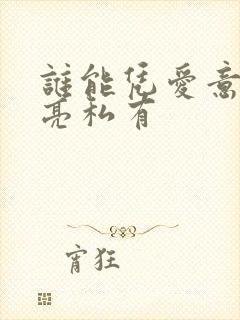 誰能凭愛意
亮私有
宵狂